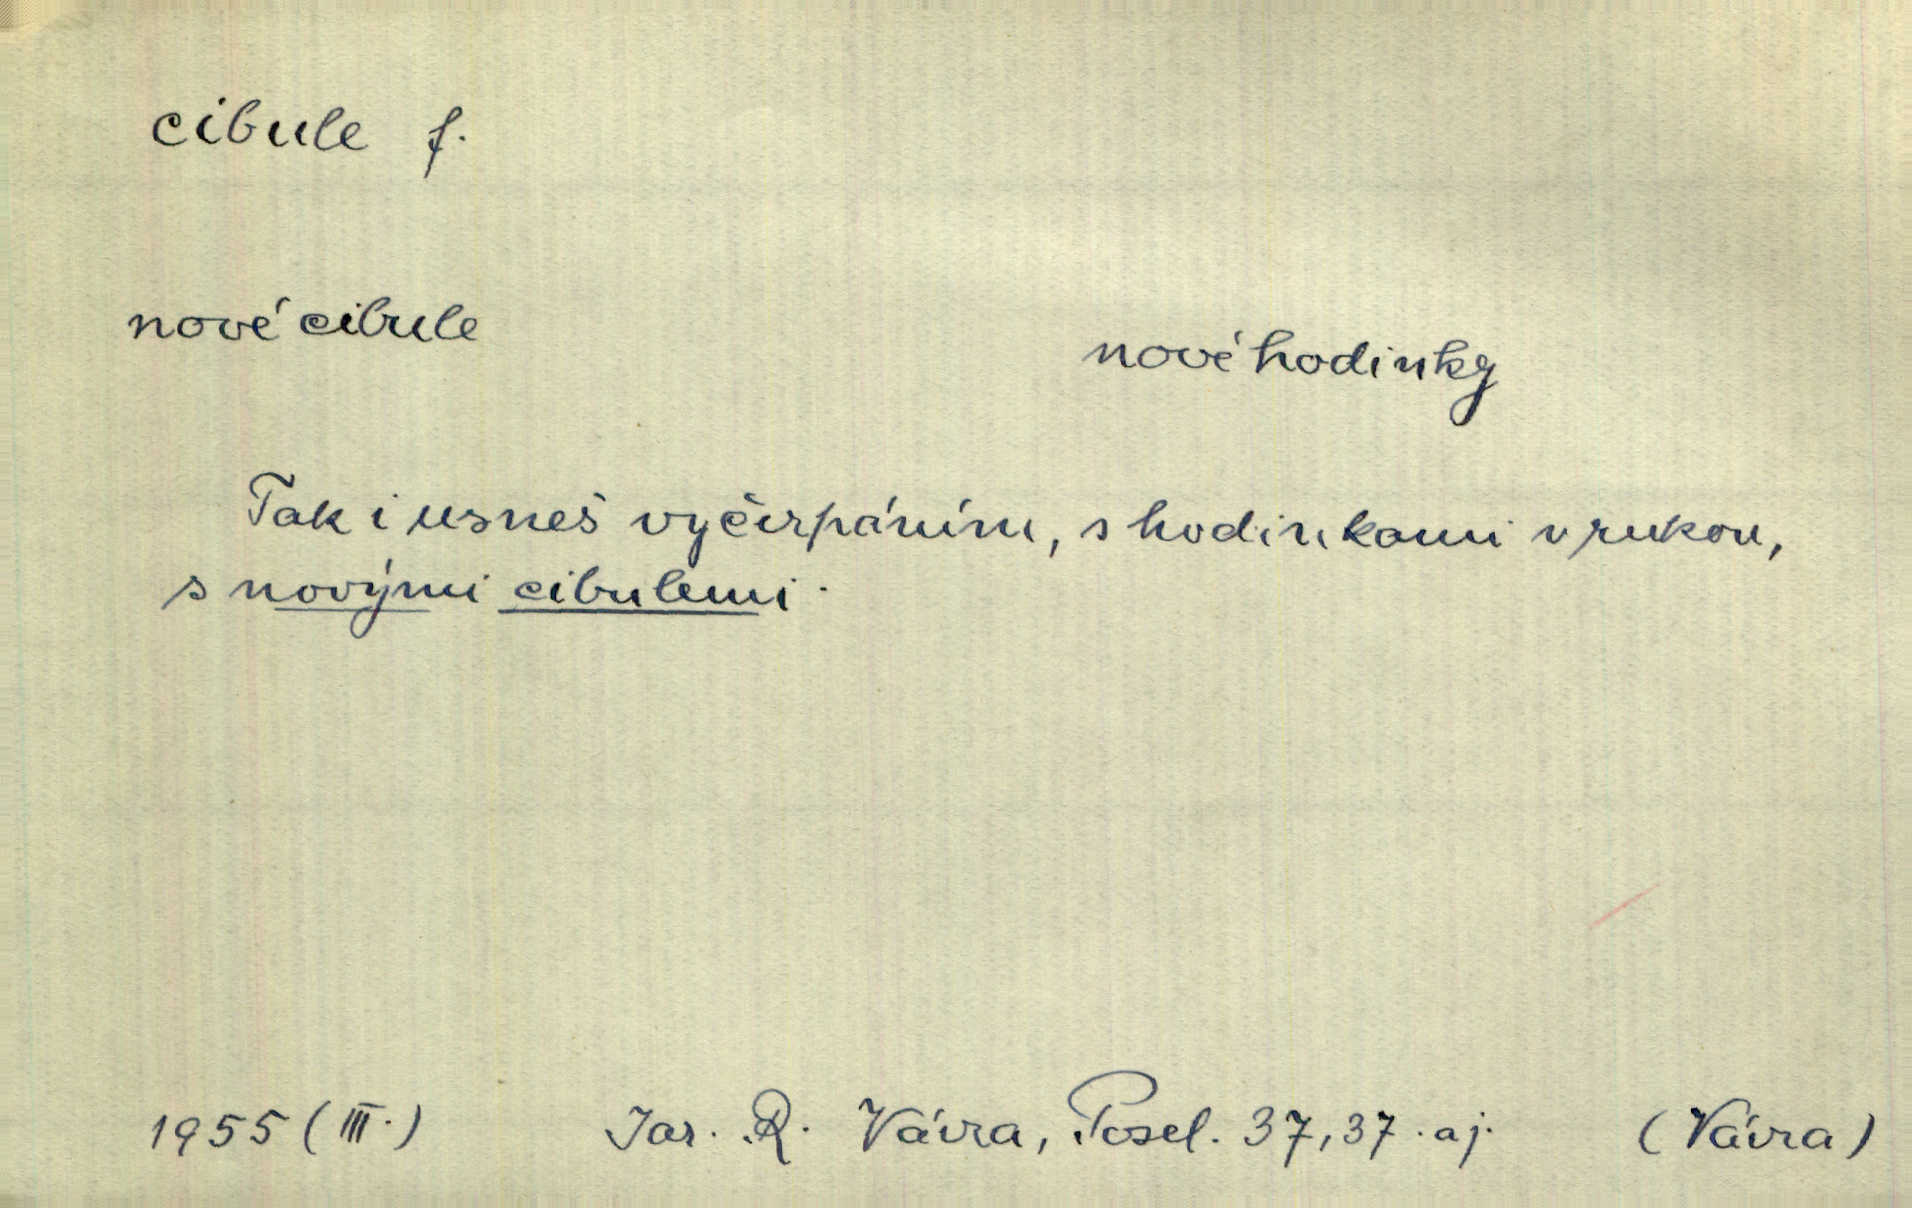 cibule f.
nové cibule
nové hodinky
Tak i usneš vyčerpáním, s hodinkami v rukou,
s novými cibulemi.
1955 (III.) Jar. R. Vávra, Posel. 37, 37. aj. (Vávra)